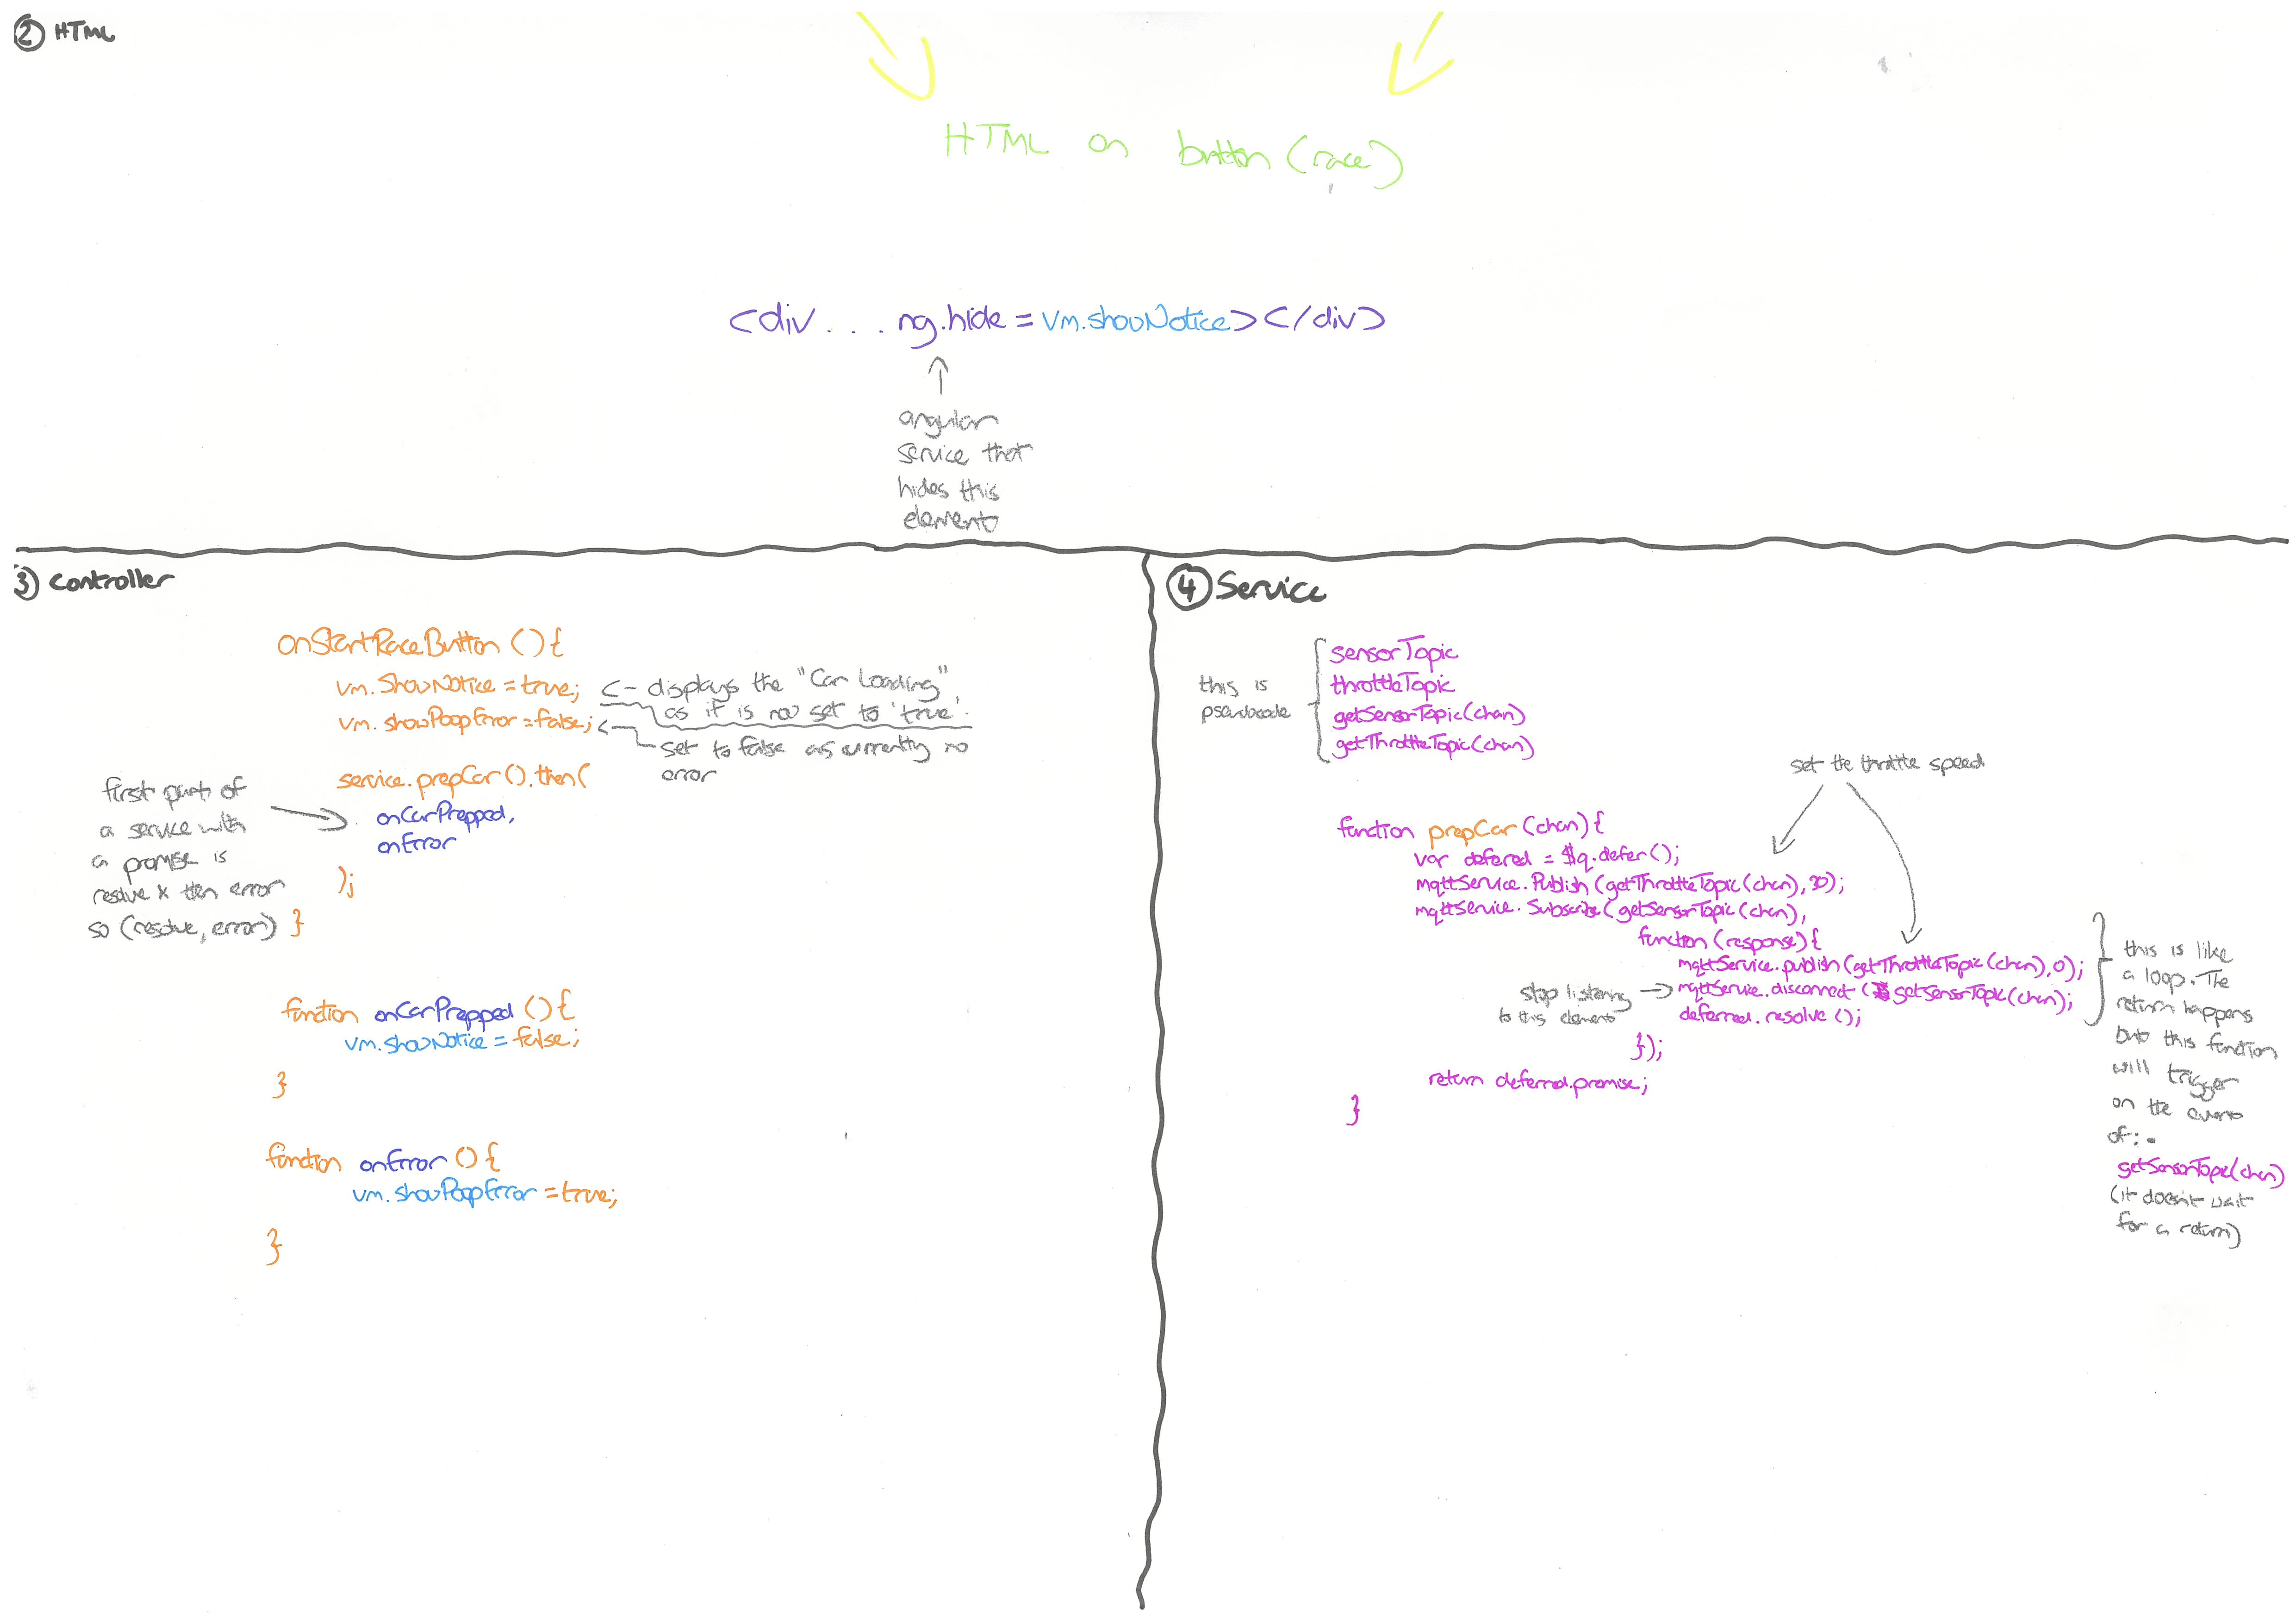 ② HTML
HTML on button (race)
<div . . . ng.hide = vm.showNotice></div>
angular
service that
hides this
element
3) Controller
onStartRaceButton () {
vm.ShowNotice = true; <- displays the "Car Loading",
as it is now set to 'true'.
vm.showPoopError = false; <
set to false as currently no
error
service.prepCar().then(
first part of
a service with
a promise is
resolve & then error
so (resolve, error)
onCarPrepped,
onError
);
}
function onCarPrepped () {
vm.showNotice = false;
}
function onError () {
vm.showPoopError = true;
}
④ Service
this is
pseudocode
sensorTopic
throttleTopic
getSensorTopic(chan)
getThrottleTopic(chan)
set the throttle speed
function prepCar (chan) {
var defered = $q.defer();
mqttService.Publish (getThrottleTopic(chan), 30);
mqttService.Subscribe( getSensorTopic(chan),
function (response) {
mqttService.publish (getThrottleTopic(chan), 0);
stop listening
to this element
mqttService.disconnect ( getSensorTopic(chan);
deferred.resolve ();
});
return deferred.promise;
}
this is like
a loop. The
return happens
but this function
will trigger
on the event
of:-
getSensorTopic(chan)
(it doesn't wait
for a return)